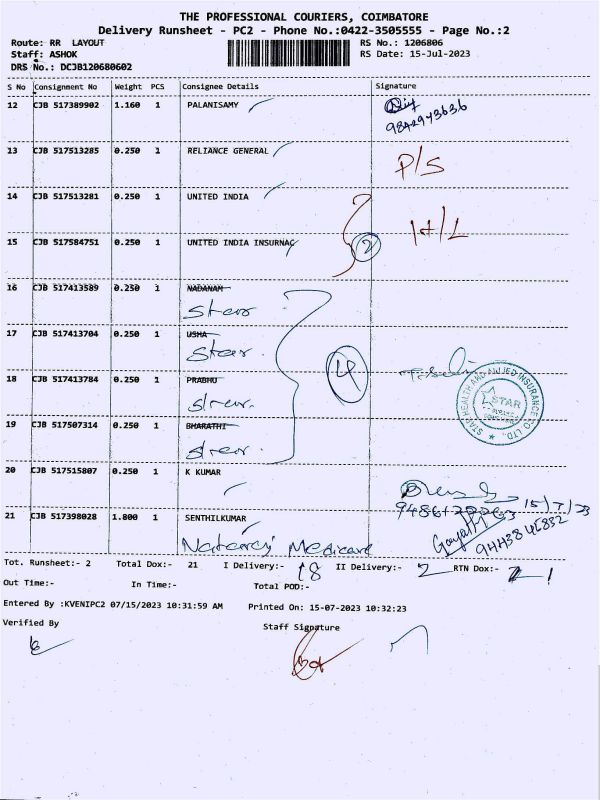 THE PROFESSIONAL COURIERS, COIMBATORE
Delivery Runsheet - PC2 - Phone No.:0422-3505555 - Page No.:2
Route: RR LAYOUT RS No.: 1206806
Staff: ASHOK RS Date: 15-Jul-2023
DRS No.: DCJB120680602
S No Consignment No Weight PCS Consignee Details Signature
12 CJB 517389902 1.160 1 PALANISAMY
9842943636
13 CJB 517513285 0.250 1 RELIANCE GENERAL P/S
14 CJB 517513281 0.250 1 UNITED INDIA
15 CJB 517584751 0.250 1 UNITED INDIA INSURNAC 2 H/L
16 CJB 517413589 0.250 1 NADANAM
Star
17 CJB 517413704 0.250 1 USHA
Star 4
18 CJB 517413784 0.250 1 PRABHU
Star STAR HEALTH AND ALLIED INSURANCE CO LTD. STAR
19 CJB 517507314 0.250 1 BHARATHI
Star
20 CJB 517515807 0.250 1 K KUMAR
15/7/23
21 CJB 517398028 1.800 1 SENTHILKUMAR
Gayathri
Nataraj Medicare
Tot. Runsheet:- 2 Total Dox:- 21 I Delivery:- 18 II Delivery:- 2 RTN Dox:- 1
Out Time:- In Time:- Total POD:-
Entered By :KVENIPC2 07/15/2023 10:31:59 AM Printed On: 15-07-2023 10:32:23
Verified By Staff Signature